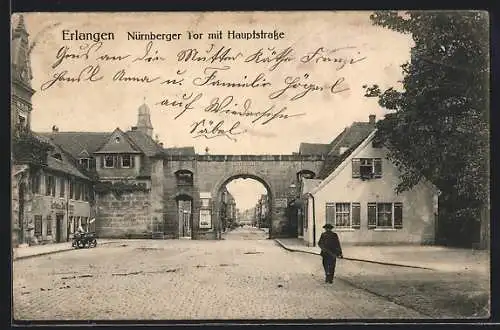 Erlangen Nürnberger Tor mit Hauptstraße
Gruß an die Mutter Käthe Franzi
Hansl Anna u. Familie Högerl
auf Wiedersehen